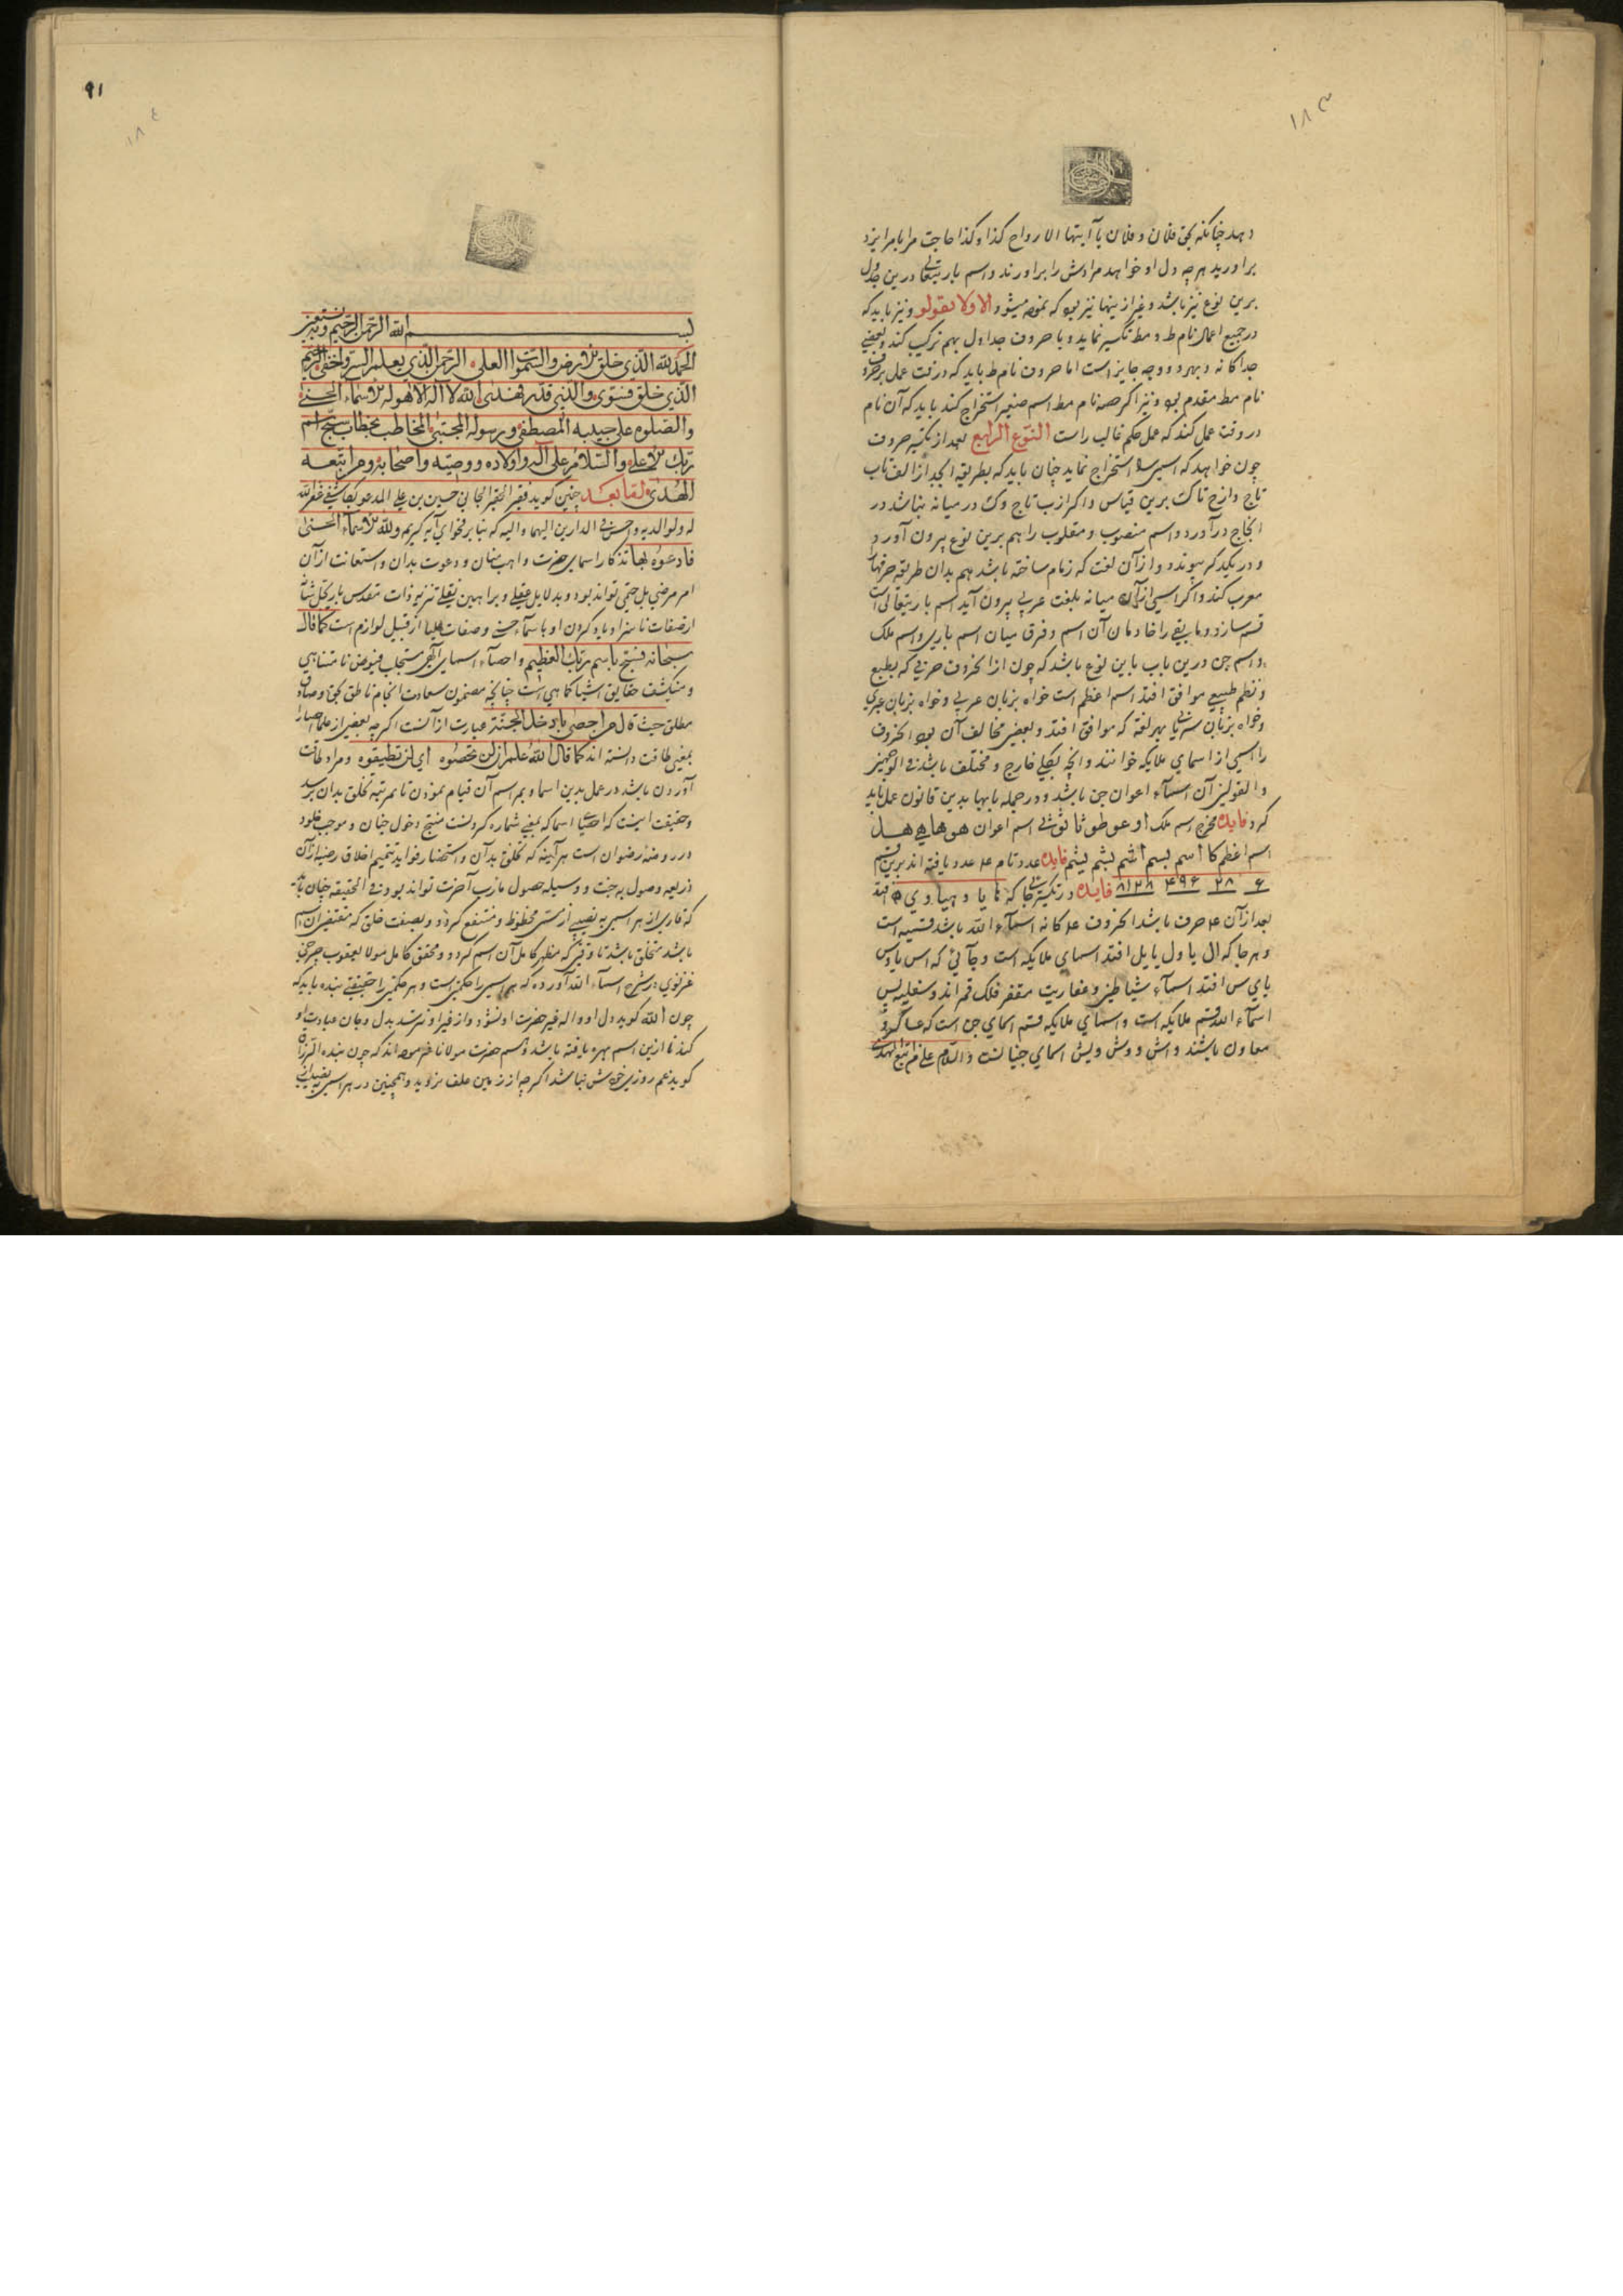 ١٨٣
دهد چنانکه بحق فلان و فلان یا ایتها الارواح کذا وکذا حاجت مرا بامر ایزد
براورید هرچه دل او خواهد مرادش را براورند واسم باریتعالی درین جدول
برین نوع نیز باشد وغیر ازینها نیز بود که نموده میشود الاولا نقولو ونیز باید که
در جمیع اعمال نام ط و مط تکسیر نماید و با حروف جداول بهم ترکیب کند وبعضی
جداکانه و بهر دو وجه جایز است اما حروف نام ط باید که در وقت عمل بر حروف
نام مط مقدم بود ونیز اکر حصه نام مط اسم صغیر استخراج کند باید که آن نام
در وقت عمل کند که عمل حکم غالب راست النوع الرابع بعد از تکسیر حروف
چون خواهد که اسمی استخراج نماید چنان باید که بطریقه ابجد از الف تاب
تاج وازج تاک برین قیاس واکر از ب تاج وک در میانه نباشد در
انجاج درآورد واسم منصوب ومقلوب را هم برین نوع بیرون آورد
و در یکدکر پیوندد وازآن لغت که زمام ساخته باشد هم بدان طریقه حرفها را
معرب کند واکر اسمی ازآن میانه بلغت عربی بیرون آید اسم باریتعالی است
قسم سازد ومابقی را خادمان آن اسم وفرق میان اسم باری واسم ملک
واسم جن درین باب باین نوع باشد که چون از الحروف حرفی که بطبع
ونظم طبیعی موافق افتد اسم اعظم است خواه بزبان عربی وخواه بزبان عبری
وخواه بزبان سریانی بهر لغة که موافق افتد وبعضی مخالف آن بود الحروف
را اسمی از اسمای ملایکه خوانند وانچه بکلی خارج ومختلف باشد فی الوجهین
والقولین آن اسماء اعوان جن باشد ودر جمله بابها بدین قانون عمل باید
کرد فایده مخرج اسم ملک او عو طو ثا ثو شی اسم اعوان هو ها هی هل
اسم اعظم کا اسم بسم اشم بشم یشم فایده عدد تام عدد یافته اند برین قسم
۶ ۲۸ ۴۹۶ ۸۱۲۸ فایده در تکسیر هرجا که افتد
بعد ازآن حرف باشد الحروف علکانه اسماء الله باشد قسمیه است
وهرجا که ال یا ول یا یل افتد اسمای ملایکه است وجائی که اس یا وس
یا ی س افتد اسماء شیاطین وعفاریت مقعر فلک قمر اند وسفلیه پس
اسماء الله قسم ملایکه است واسمای ملایکه قسم اسمای جن است که
معاون باشند واش ووش ویش اسمای جنیانست والسلام علی من اتبع الهدی
٩١
١٨٤
بسم الله الرحمن الرحیم وبه نستعین
الحمد لله الذی خلق الارض والسموات العلی الرحمن الذی یعلم السر واخفی
الذی خلق فسوی والذی قدر فهدی الله لا اله الا هو له الاسماء الحسنی
والصلوة علی حبیبه المصطفی ورسوله المجتبی المخاطب بخطاب سبح اسم
ربک الاعلی والسلام علی آله واولاده ووصیه واصحابه ومن اتبعه
الهدی اما بعد چنین کوید فقیر الحقیر الجانی حسین بن علی المدعو بکاشفی غفر الله
له ولوالدیه واحسن فی الدارین الیهما والیه که بنابر فحوای آیه کریم ولله الاسماء الحسنی
فادعوه بها تذکار اسمای حضرت واهب منان ودعوت بدان واستعانت ازآن
امر مرضی بل حتمی تواند بود وبدلایل عقلی وبراهین نقلی تنزیه ذات مقدس باری جل شانه
ازصفات ناسزا ویاد کردن او باسماء حسنی وصفات علیا از قبیل لوازم است کما قال
سبحانه فسبح باسم ربک العظیم واحصاء اسمای الهی مستجلب فیوض نامتناهی
ومنکشف حقایق اشیا کما هی است چنانچه مضمون سعادت انجام ناطق بحق وصادق
مطلق حیث قال من احصی بها دخل الجنة عبارت ازآنست اکرچه بعضی از علما احصا را
بمعنی طاقت دانسته اند کما قال الله علم ان لن تحصوه ای لن تطیقوه ومراد طاقت
آوردن باشد در عمل بدین اسما وبمراسم آن قیام نمودن تا مرتبه تخلق بدان برسد
وحقیقت اینست که احصای اسما که بمعنی شماره کردنست منتج دخول جنان وموجب خلود
در روضهٔ رضوان است هرآینه که تخلق بدآن واستحضار فواید تتمیم اخلاق رضیه ازآن
ذریعه وصول بجنت ووسیله حصول مارب آخرت تواند بود وفی الحقیقه چنان باید
که قاری از هر اسمی به نصیبی از مسمی محظوظ ومنتفع کردد وبصفت خلقی که مقتضی آن اسم
باشد متخلق باشد تا وقتی که مظهر کامل آن اسم کردد ومحقق کامل مولانا یعقوب چرخی
غزنوی درشرح اسماء الله آورده که هر اسمی را حکمتی است وهر حکمتی را حقیقتی بنده باید که
چون الله کوید دل او واله غیر حضرت او نشود واز غیر او نترسد بدل وجان عبادت او
کند تا ازین اسم بهره یافته باشد وهم حضرت مولانا فرموده اند که چون بنده الرزاق
کوید غم روزی خودش نباشد اکرچه از زمین علف نروید وهمچنین در هر اسمی نصیب